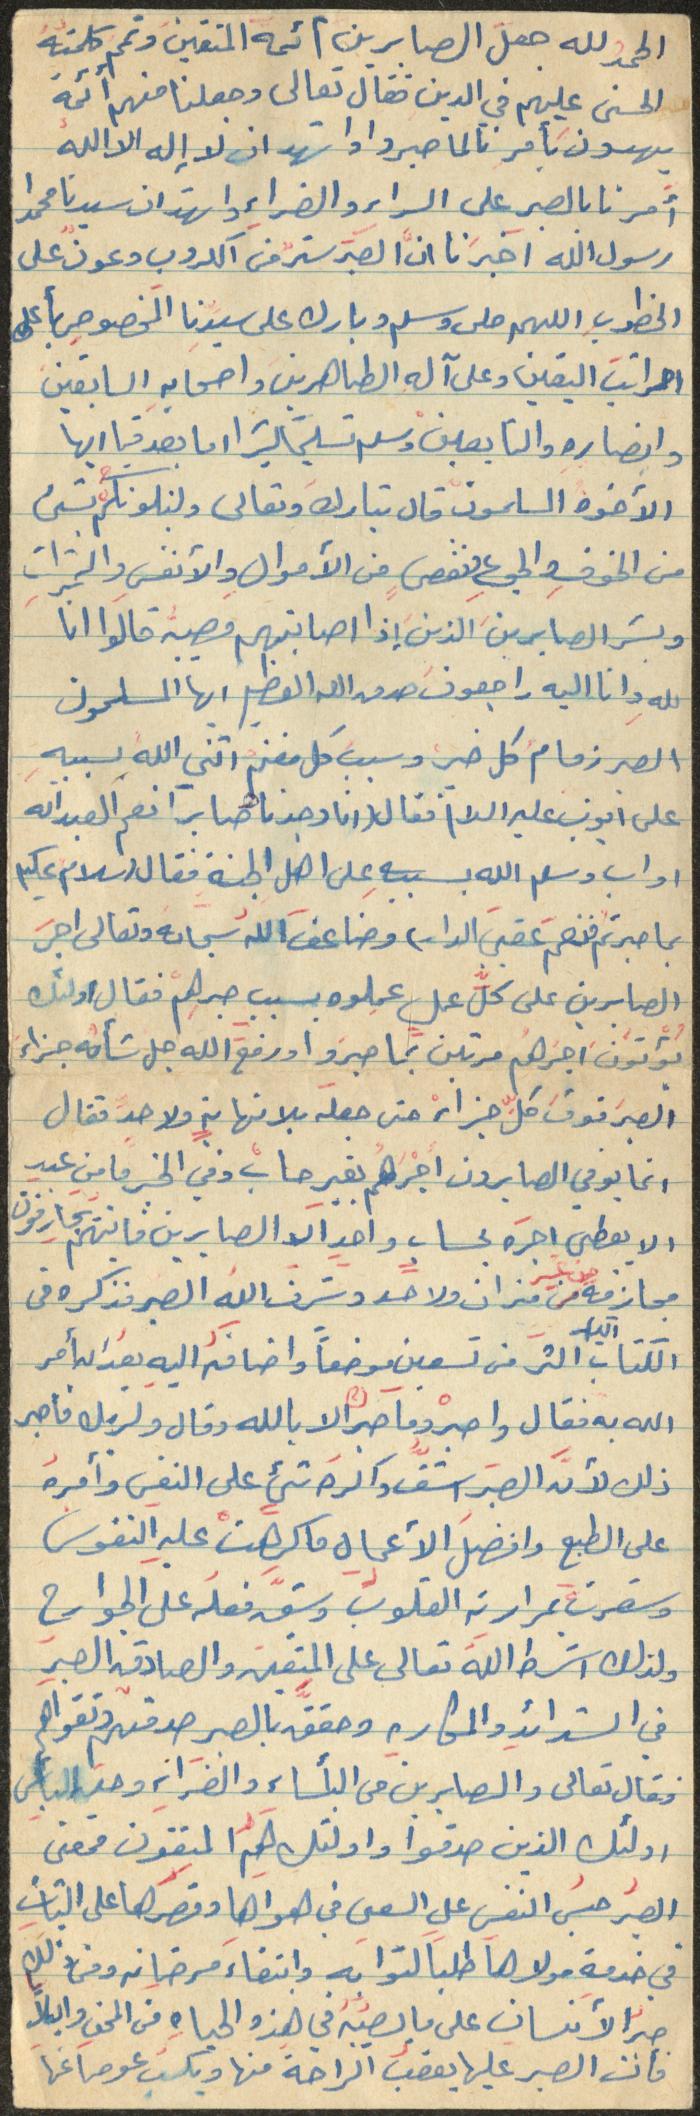 الحمد لله جعل الصابرين أئمة المتقين وتمم كلمته
الحسنى عليهم في الدين فقال تعالى وجعلنا منهم أئمة
يهدون بأمرنا لما صبروا واشهد ان لا إله الا الله
أمرنا بالصبر على السراء والضراء واشهد ان سيدنا محمدا
رسول الله اخبرنا انَّ الصبَر سترٌ من الكروب وعون على
الخطوبِ اللهم صلى وسلم وبارك على سيدِنا المخصوصِ بأعلى
مراتبَ اليقين وعلى آله الطاهرين واصحابِه السابقين
وانصارِه والتابعينْ وسلم تسليمًا كثيرا اما بعد فيا ايها
الأخوة المسلمون قال تبارك وتعالى ولنبلونكم بشئ
من الخوفِ والجوعِ ونقصٍ من الأموال والأنفس والثمراتِ
وبشر الصابرين الذين إذا اصابتهم مصيبة قالوا انا
لله وانا اليه راجعون صدق الله العظيم ايها المسلمون
الصبر زمامُ كل خير وسببُ كل مغنم اثنى اللهُ بسببهِ
على ايوب عليه السلام فقال (انا وجدناه صابرًا نعم العبد انه
اواب وسلم الله بسببه على اهل الجنة فقال (سلام عليكم
بما صبرتم فنعم عقبى الدار) وضاعف الله سبحانه وتعالى اجر
الصابرين على كلِّ عمل عملوه بسبب صبرِهمْ فقال اولئك
يُؤتونَ اجرَهم مرتين بما صبرَوا ورفعَ الله جل شأنه جزاءَ
الصبرَ فوقَ كلِّ جزاءْ حتى جعله بلا نهايةٍ ولا حدٍ فقال
انما يوفى الصابرون أجْرَهُم بغير حساب وفي الخبر ما من عبدٍ
الا يعطى اجره بحسابٍ واحدٍ الا الصابرين فانهم يجازفون
مجازفة من غير ميزان ولا حد وشرف الله الصبر فذكره في
الكتاب اكثر من تسعين موضعاً واضافَه اليه بعد الأمر
الله به فقال واصبر وما صبرك الا بالله وقال ولربك فاصبر
ذلك لأنَّ الصبَر اشقُّ واكره شئ على النفس وأمره
على الطبع وافضلَ الأعمالِ ما كرِهَتْ عليه النفوس
بمرارته القلوبُ وشقَّ فعله على الجوارح
ولذلك اشترط الله تعالى على المتقين والصادقين الصبر
في الشدائدِ والمكارهِ وحققَّ بالصبر صدقَهم وتقواهم
فقال تعالى والصابرين في البأساء والضراءِ وحين البأس
اولئك الذين صدقوا واولئك هم المتقون فمعنى
الصبر حبسُ النفس عن السعى في هواها وقصرُها على الثباتِ
في خدمة مولاها طلباً لثوابه وابتغاءَ مرضاته ومن ذلك
صبر الأنسان على ما يصيبُه في هذه الحياةِ من المحنِ والبلاءْ
فأن الصبر عليها يعقبُ الراحة منها ويكسبُ عوضاً عنها